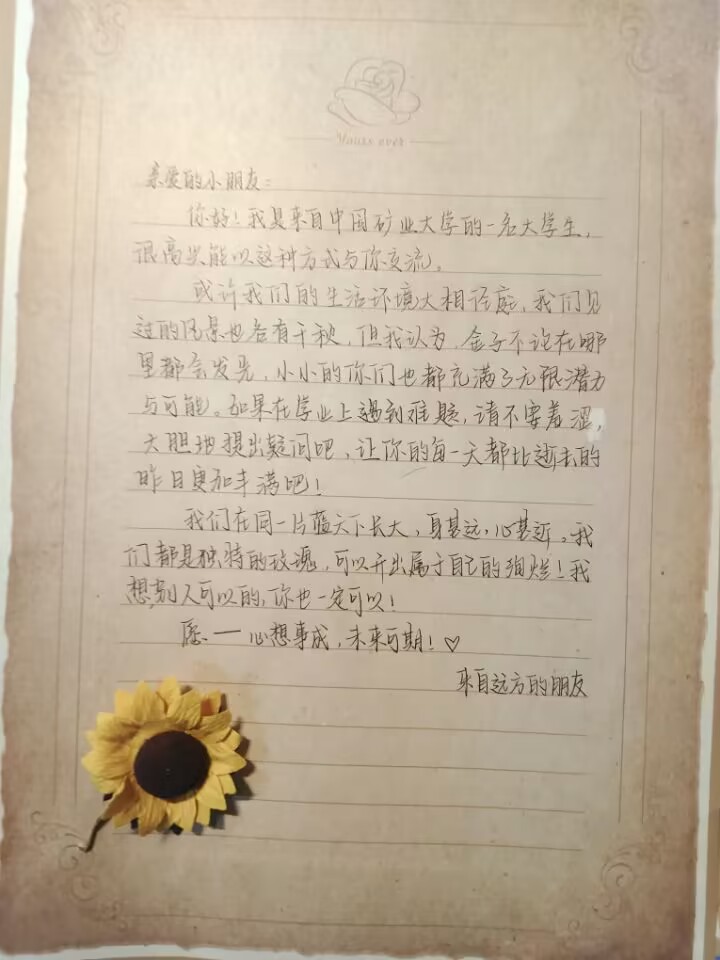 Yours ever
亲爱的小朋友:
你好!我是来自中国矿业大学的一名大学生,
很高兴能以这种方式与你交流。
或许我们的生活环境大相径庭,我们见
过的风景也各有千秋,但我认为,金子不论在哪
里都会发光,小小的你们也都充满了无限潜力
与可能。如果在学业上遇到难题,请不要羞涩,
大胆地提出疑问吧,让你的每一天都比逝去的
昨日更加丰满吧!
我们在同一片蓝天下长大,身甚远,心甚近。我
们都是独特的玫瑰,可以开出属于自己的绚烂!我
想,别人可以的,你也一定可以!
愿——心想事成,未来可期!♡
来自远方的朋友